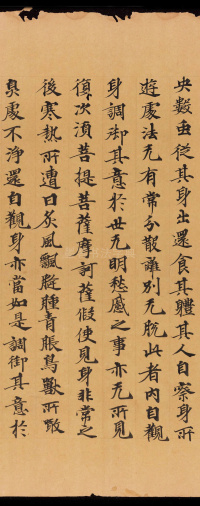 央數虫從其身出還食其體其人自察身所
遊處法无有常分散離別无脫此者內自觀
身調御其意於世无明愁慼之事亦无所見
復次須菩提菩薩摩訶薩假使見身非常之
後寒熱所遭日炙風飄膖腫青脹鳥獸所噉
臭處不淨還自觀身亦當如是調御其意於